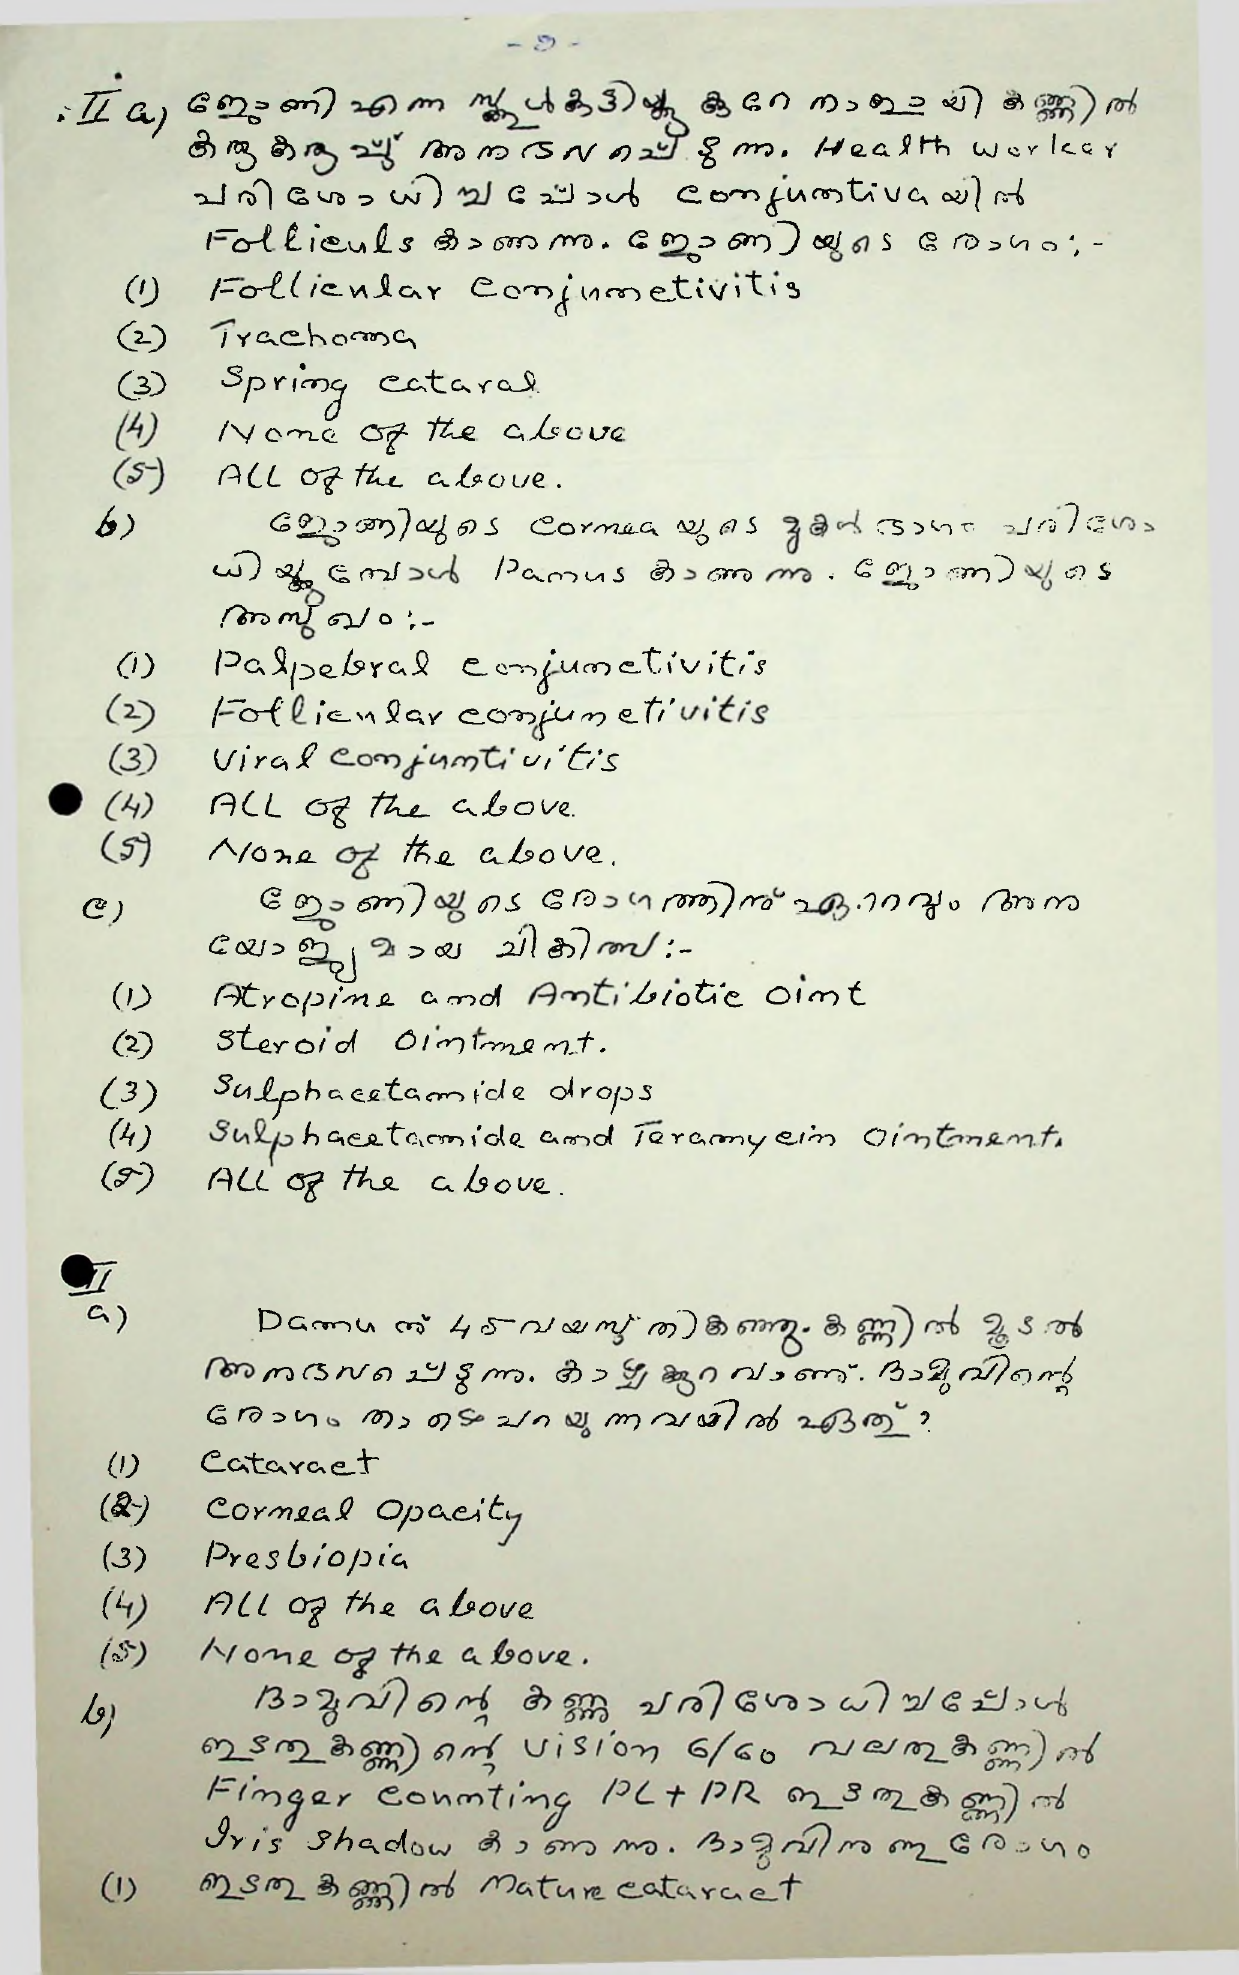 - ൭ -
II a) ജോണി എന്ന സ്കൂൾകുട്ടിയ്ക്കു കുറേ നാളായി കണ്ണിൽ
കരുകരുപ്പ് അനുഭവപ്പെടുന്നു. Health worker
പരിശോധിച്ചപ്പോൾ conjuntivaയിൽ
Follicules കാണുന്നു. ജോണിയുടെ രോഗം:-
(1) Follicular Conjunctivitis
(2) Trachoma
(3) Spring cataral
(4) None of the above
(5) All of the above.
b) ജോണിയുടെ cornea യുടെ മുകൾഭാഗം പരിശോ
ധിയ്ക്കുമ്പോൾ Panus കാണുന്നു. ജോണിയുടെ
അസുഖം:-
(1) Palpebral conjunctivitis
(2) Follicular conjunctivitis
(3) Viral conjuntivitis
(4) All of the above.
(5) None of the above.
c) ജോണിയുടെ രോഗത്തിന് ഏററവും അനു
യോജ്യമായ ചികിത്സ:-
(1) Atropine and Antibiotic oint
(2) Steroid Ointment.
(3) Sulphacetamide drops
(4) Sulphacetamide and Teramycin Ointment.
(5) All of the above.
II
a) Damu ന് 45 വയസ്സ് തികഞ്ഞു. കണ്ണിൽ മൂടൽ
അനുഭവപ്പെടുന്നു. കാഴ്ചക്കുറവാണ്. ദാമുവിന്റെ
രോഗം താഴെപറയുന്നവയിൽ ഏത്?
(1) Cataract
(2) Corneal Opacity
(3) Presbiopia
(4) All of the above
(5) None of the above.
b) ദാമുവിന്റെ കണ്ണു പരിശോധിച്ചപ്പോൾ
ഇടതുകണ്ണിന്റെ vision 6/60 വലതുകണ്ണിൽ
Finger Counting PL + PR ഇടതുകണ്ണിൽ
Iris Shadow കാണുന്നു. ദാമുവിനുള്ള രോഗം
(1) ഇടതുകണ്ണിൽ Mature cataract